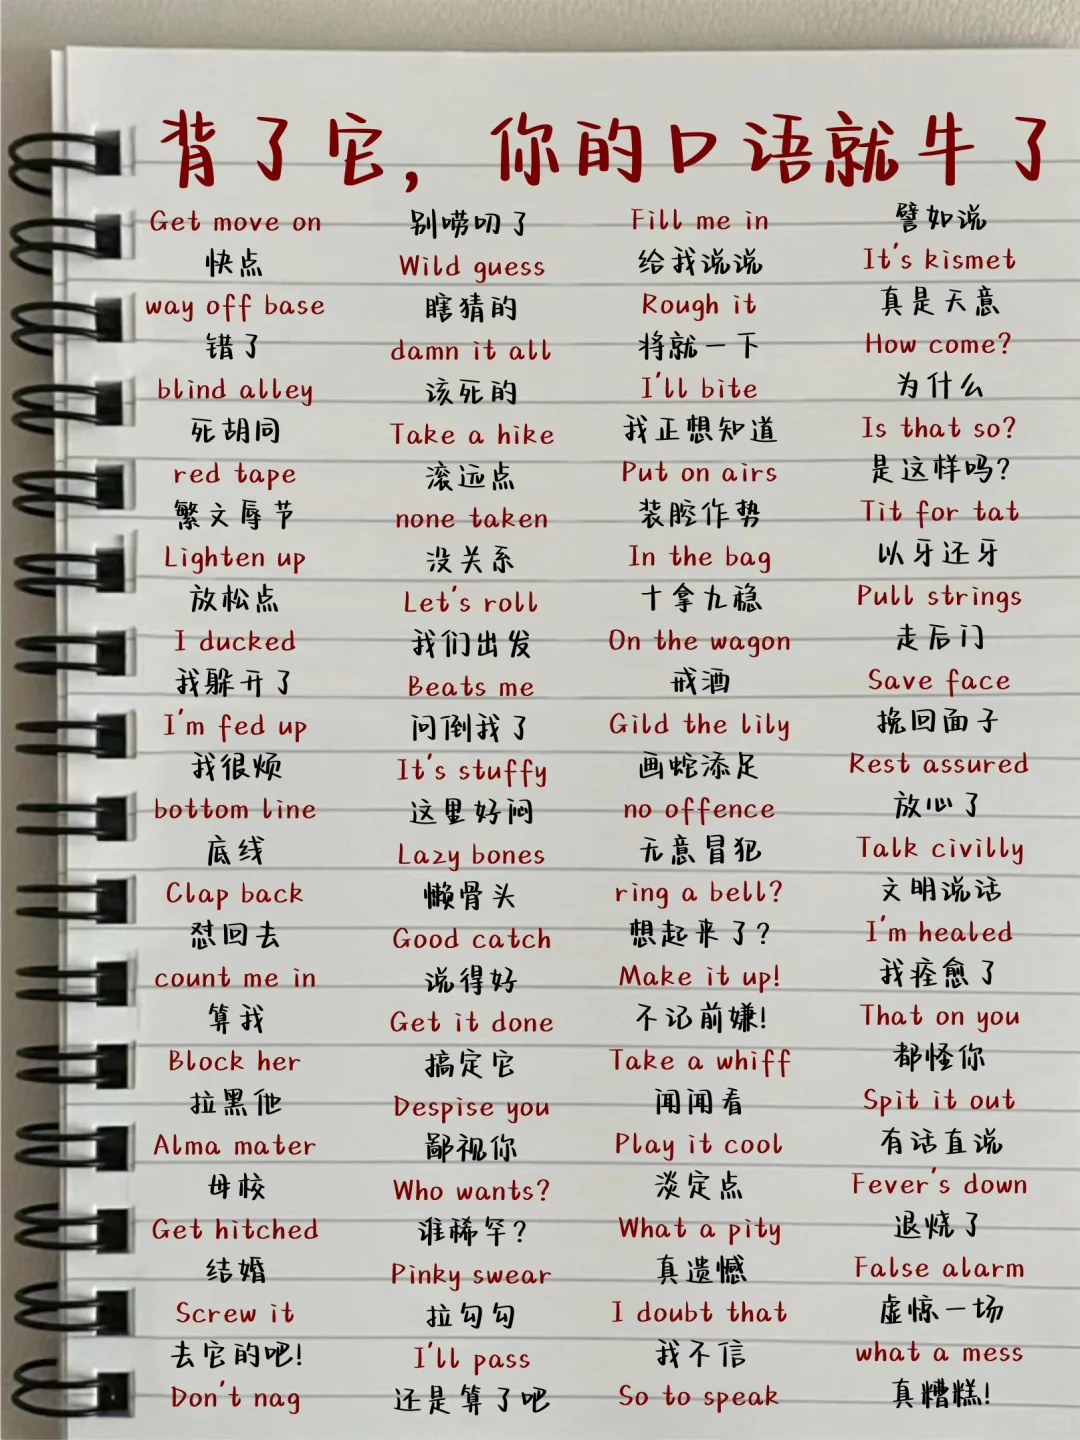 背了它，你的口语就牛了
Get move on
快点
way off base
错了
blind alley
死胡同
red tape
繁文辱节
Lighten up
放松点
I ducked
我躲开了
I'm fed up
我很烦
bottom line
底线
Clap back
怼回去
count me in
算我
Block her
拉黑他
Alma mater
母校
Get hitched
结婚
Screw it
去它的吧!
Don't nag
别唠叨了
Wild guess
瞎猜的
damn it all
该死的
Take a hike
滚远点
none taken
没关系
Let's roll
我们出发
Beats me
问倒我了
It's stuffy
这里好闷
Lazy bones
懒骨头
Good catch
说得好
Get it done
搞定它
Despise you
鄙视你
Who wants?
谁稀罕?
Pinky swear
拉勾勾
I'll pass
还是算了吧
Fill me in
给我说说
Rough it
将就一下
I'll bite
我正想知道
Put on airs
装腔作势
In the bag
十拿九稳
On the wagon
戒酒
Gild the lily
画蛇添足
no offence
无意冒犯
ring a bell?
想起来了?
Make it up!
不记前嫌!
Take a whiff
闻闻看
Play it cool
淡定点
What a pity
真遗憾
I doubt that
我不信
So to speak
譬如说
It's kismet
真是天意
How come?
为什么
Is that so?
是这样吗?
Tit for tat
以牙还牙
Pull strings
走后门
Save face
挽回面子
Rest assured
放心了
Talk civilly
文明说话
I'm healed
我痊愈了
That on you
都怪你
Spit it out
有话直说
Fever's down
退烧了
False alarm
虚惊一场
what a mess
真糟糕!